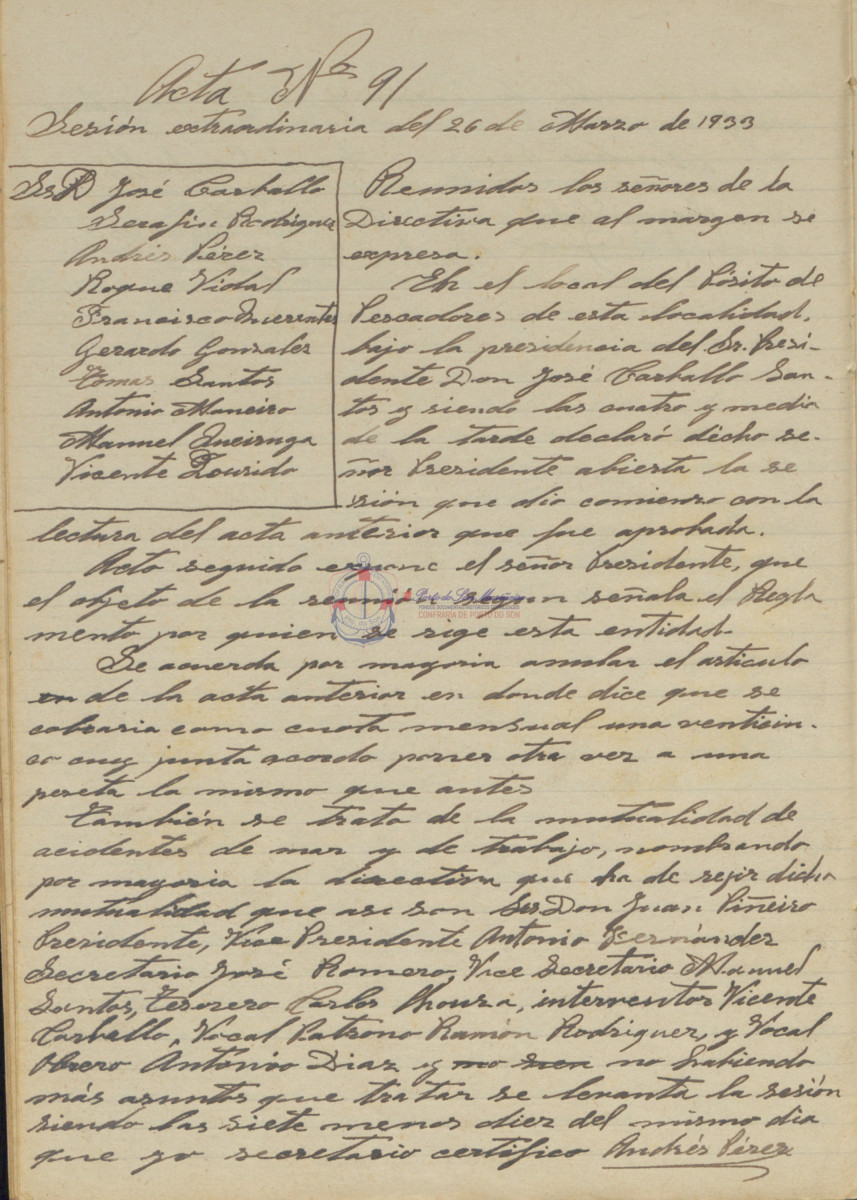 Acta Nº 91
Sesión extraordinaria del 26 de Marzo de 1933
Srs D José Carballo
Serafin Rodriguez
Andrés Pérez
Roque Vidal
Francisco
Gerardo Gonzalez
Tomas Santos
Antonio Maneiro
Manuel Queiruga
Vicente Lourido
Reunidos los señores de la
Directiva que al margen se
expresa.
En el local del Pósito de
Pescadores de esta localidad,
bajo la presidencia del Sr. Presi-
dente Don José Carballo San-
tos y siendo las cuatro y media
de la tarde declaró dicho se-
ñor Presidente abierta la se
sión que dio comienzo con la
lectura del acta anterior que fue aprobada.
Acto seguido expone el señor Presidente, que
el objeto de la reunión segun señala el Regla
mento por quien se rige esta entidad.
Se acuerda por mayoria anular el articulo
en de la acta anterior en donde dice que se
cobraria como cuota mensual una venticin-
co cuy junta acordo poner otra vez a una
peseta la mismo que antes
También se trato de la mutualidad de
acidentes de mar y de trabajo, nombrando
por mayoria la directiva que ha de rejir dicha
mutualidad que asi son Srs Don Juan Piñeiro
Presidente, Vice Presidente Antonio Hernández
Secretario José Romero, Vice Secretario Manuel
Santos, Tesorero Carlos, interventor Vicente
Carballo, Vocal Patrono Ramón Rodriguez, y Vocal
Obrero Antonio Diaz y no habiendo
más asuntos que tratar se levanta la sesión
siendo las siete menos diez del mismo dia
que yo secretario certifico Andrés Pérez
CONFRARÍA DE PORTO DO SON